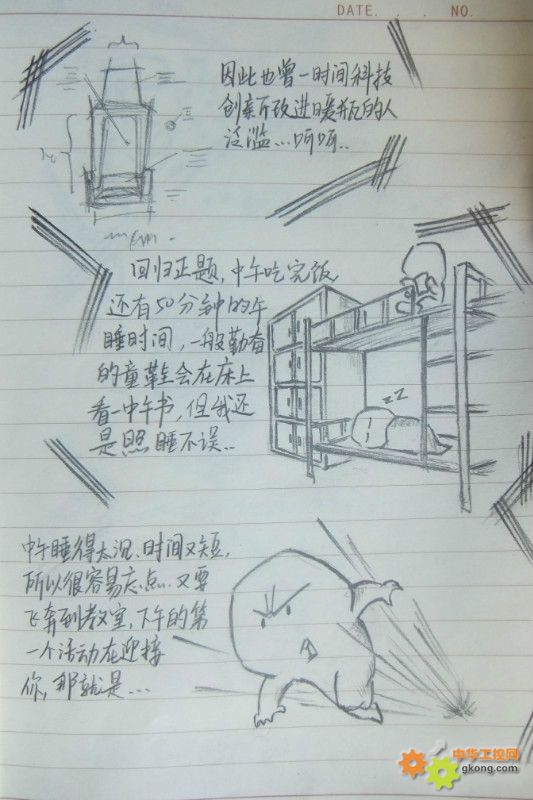 DATE. . . NO.
因此也曾一时间科技
创新所改进暖瓶的人
泛滥...呵呵..
回归正题,中午吃完饭
还有50分钟的午
睡时间,一般勤奋
的童鞋会在床上
看一中午书,但我还
是照睡不误..
ZZ
中午睡得太沉、时间又短,
所以很容易忘点...又要
飞奔到教室,下午的第
一个活动在迎接
你,那就是...
中华工控网
gkong.com